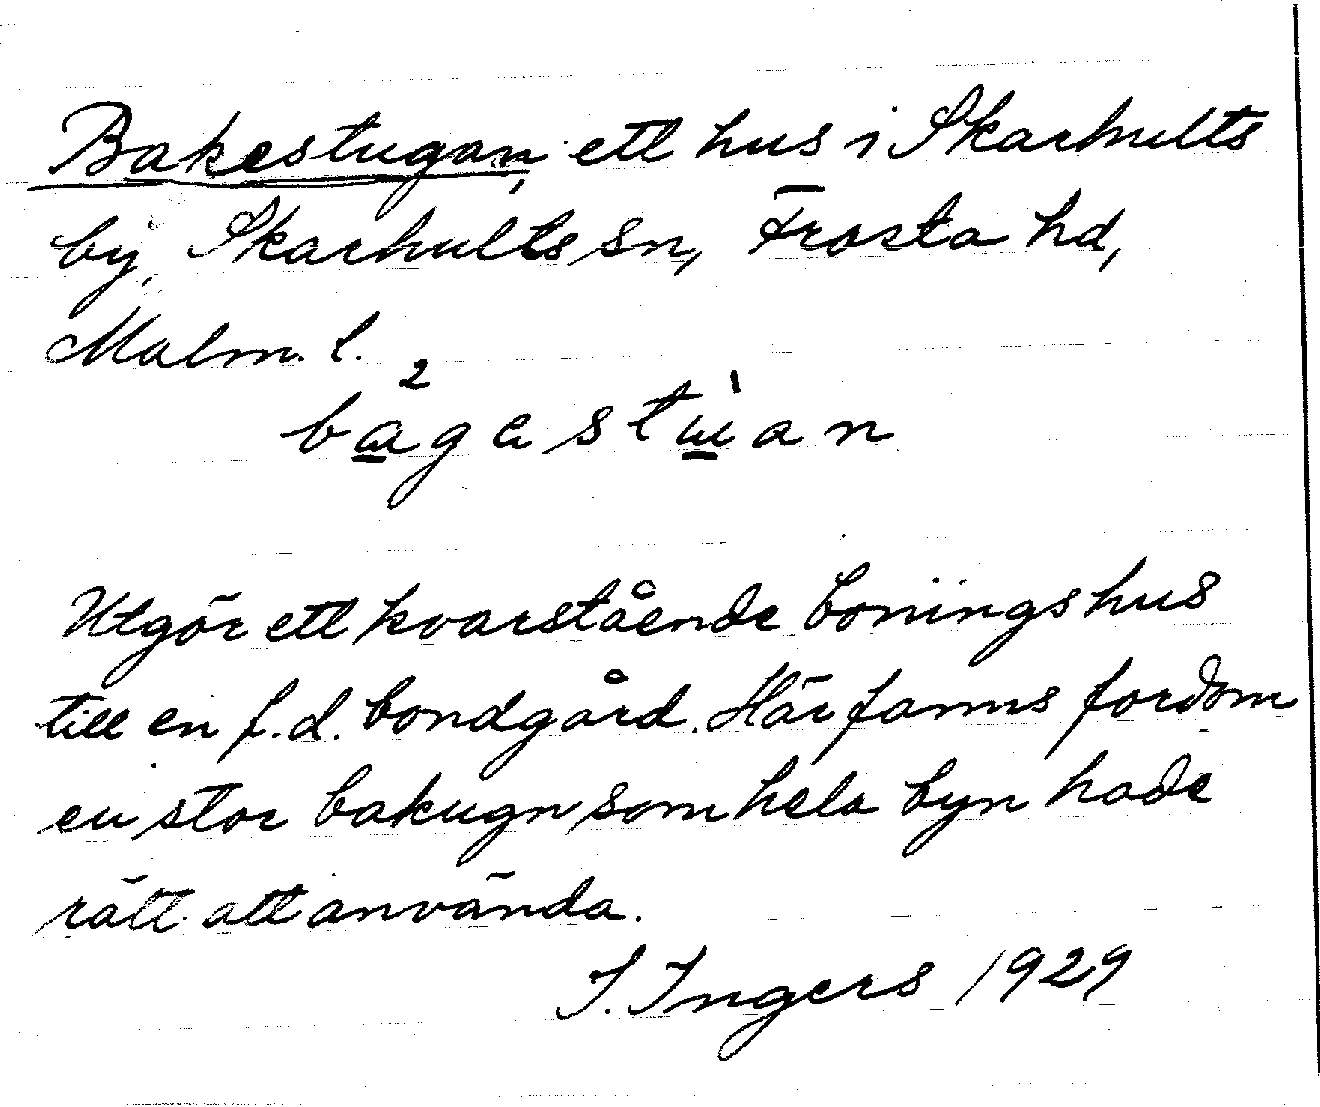 Bakestugan, ett hus i Skarhults
by, Skarhults sn, Frosta hd,
Malm. l.
2
bagestuan
Utgör ett kvarstående boningshus
till en f.d. bondgård. Här fanns fordom
en stor bakugn som hela byn hade
rätt att använda.
I. Ingers 1929